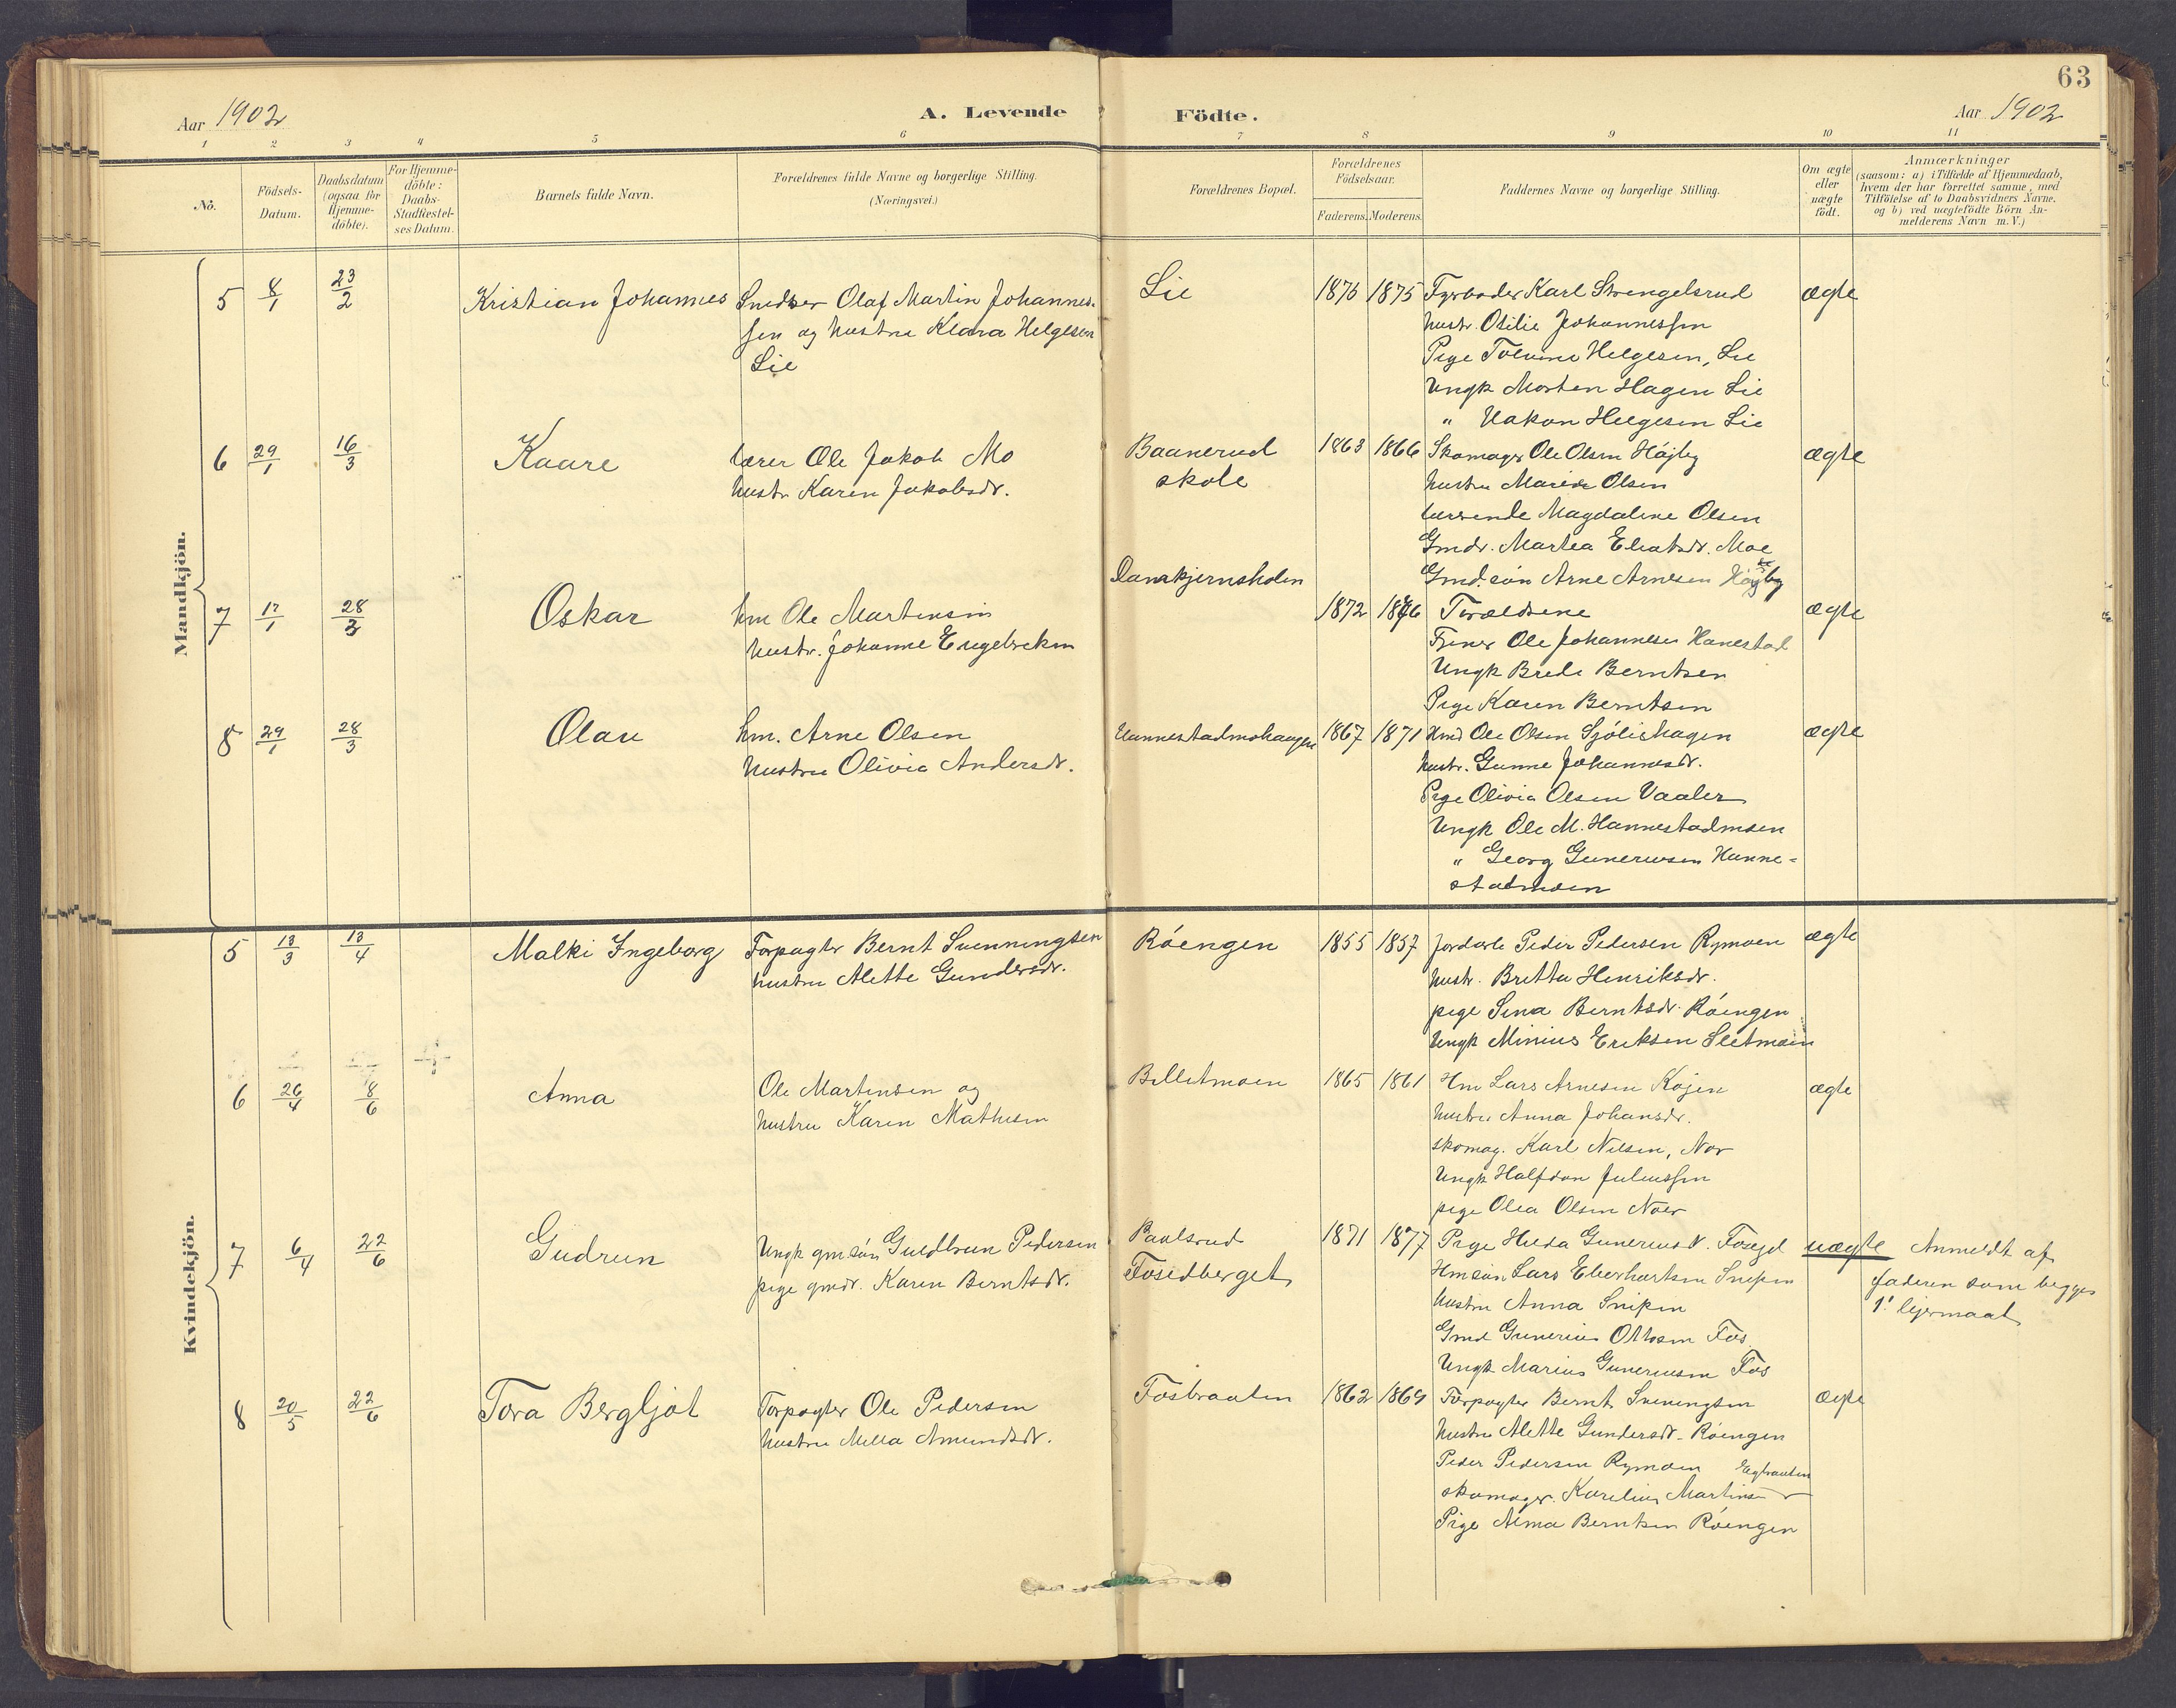 63
Aar 1902
A. Levende Födte.
Aar 1902
1 2 3 4 5 6 7 8 9 10 11
No.
Födsels-
Datum.
Daabsdatum
(ogsaa for
Hjemme-
döbte).
For Hjemme-
döbte:
Daabs-
Stadfæstel-
ses Datum.
Barnets fulde Navn.
Forældrenes fulde Navne og borgerlige Stilling.
(Næringsvei.)
Forældrenes Bopæl.
Forældrenes
Födselsaar.
Faderens. Moderens.
Faddernes Navne og borgerlige Stilling.
Om ægte
eller
uægte
födt.
Anmærkninger
(saasom: a) i Tilfælde af Hjemmedaab,
hvem der har forrettet samme, med
Tilföielse af to Daabsvidners Navne.
og b) ved uægtefödte Börn An-
melderens Navn m. V.)
Mandkjön.
5 8/1 23/2 Kristian Johannes Snedker Olaf Martin Johannes- Lie 1876 1875 Fyrboder Karl Strengelsrud ægte
sen og hustru Klara Helgesen hustr. Otilie Johannessen
Lie Pige Helgesen, Lie
Ungk Morten Hagen Lie
" Hakon Helgesen Lie
6 29/1 16/3 Kaare lærer Ole Jakob Mo Baanerud 1863 1866 Skomager Ole Olsen Højby ægte
hustr Karen Jakobsdr. skole hustru Olsen
lærerinde Magdaline Olsen
Gmdr. Martea Moe
Gmd. søn Arne Arnesen Højby
7 17/1 28/3 Oskar hm Ole Martinsen 1872 Forældrene ægte
hustr. Johanne Engebretsen Ole Johannesen Hanestad
Ungk Brede Berntsen
Pige Karen Berntsen
8 29/1 28/3 Olav hm. Arne Olsen Hannestadmohaugen 1867 1871 Hmd Ole Olsen Sjølishagen ægte
hustru Olivia Andersdr. hustr. Gunne Johannesdr.
Pige Olivia Olsen Vaaler
Ungk Ole M. Hannestadmoen
" Georg Gunerussen Hanne-
stadmoen
Kvindekjön.
5 13/3 13/4 Malki Ingeborg Forpagter Bernt Svenningsen Røengen 1855 1857 Peder Pedersen Rymoen ægte
hustru Alette Gundersdr. hustr. Britta Henriksdr.
pige Sina Berntsdr. Røengen
Ungk Minius Eriksen Sletmoen
6 26/4 8/6 Anna Ole Martinsen og Billetmoen 1865 1861 Hm Lars Arnesen Kojen ægte
hustru Karen Mathisen hustru Anna Johansdr.
skomag. Karl Nilsen, Nor
Ungk Halfdan Juliussen
pige Olea Olsen Noer
7 6/4 22/6 Gudrun Ungk gmsøn Guldbrun Pedersen Paulsrud 1871 1877 Pige Hilda Gunerusdr. uægte Anmeldt af
pige gmdr. Karen Berntsdr. Fosedberget Hmsøn Lars Eberhartsen Snipen faderen som begges
hustru Anna Snipen 1ste lejermaal
Gmd Gunerius Ottosen Fos
Ungk Marius Gunerussen Fos
8 20/5 22/6 Tora Bergljot Forpagter Ole Pedersen Fosbraaten 1862 1869 Forpagter Bernt Svenningsen ægte
hustru Milla Amundsdr. hustru Alette Gundersdr. Røengen
Peder Pedersen Rymoen
skomager. Karelius Martinsen
Pige Alma Berntsen Røengen